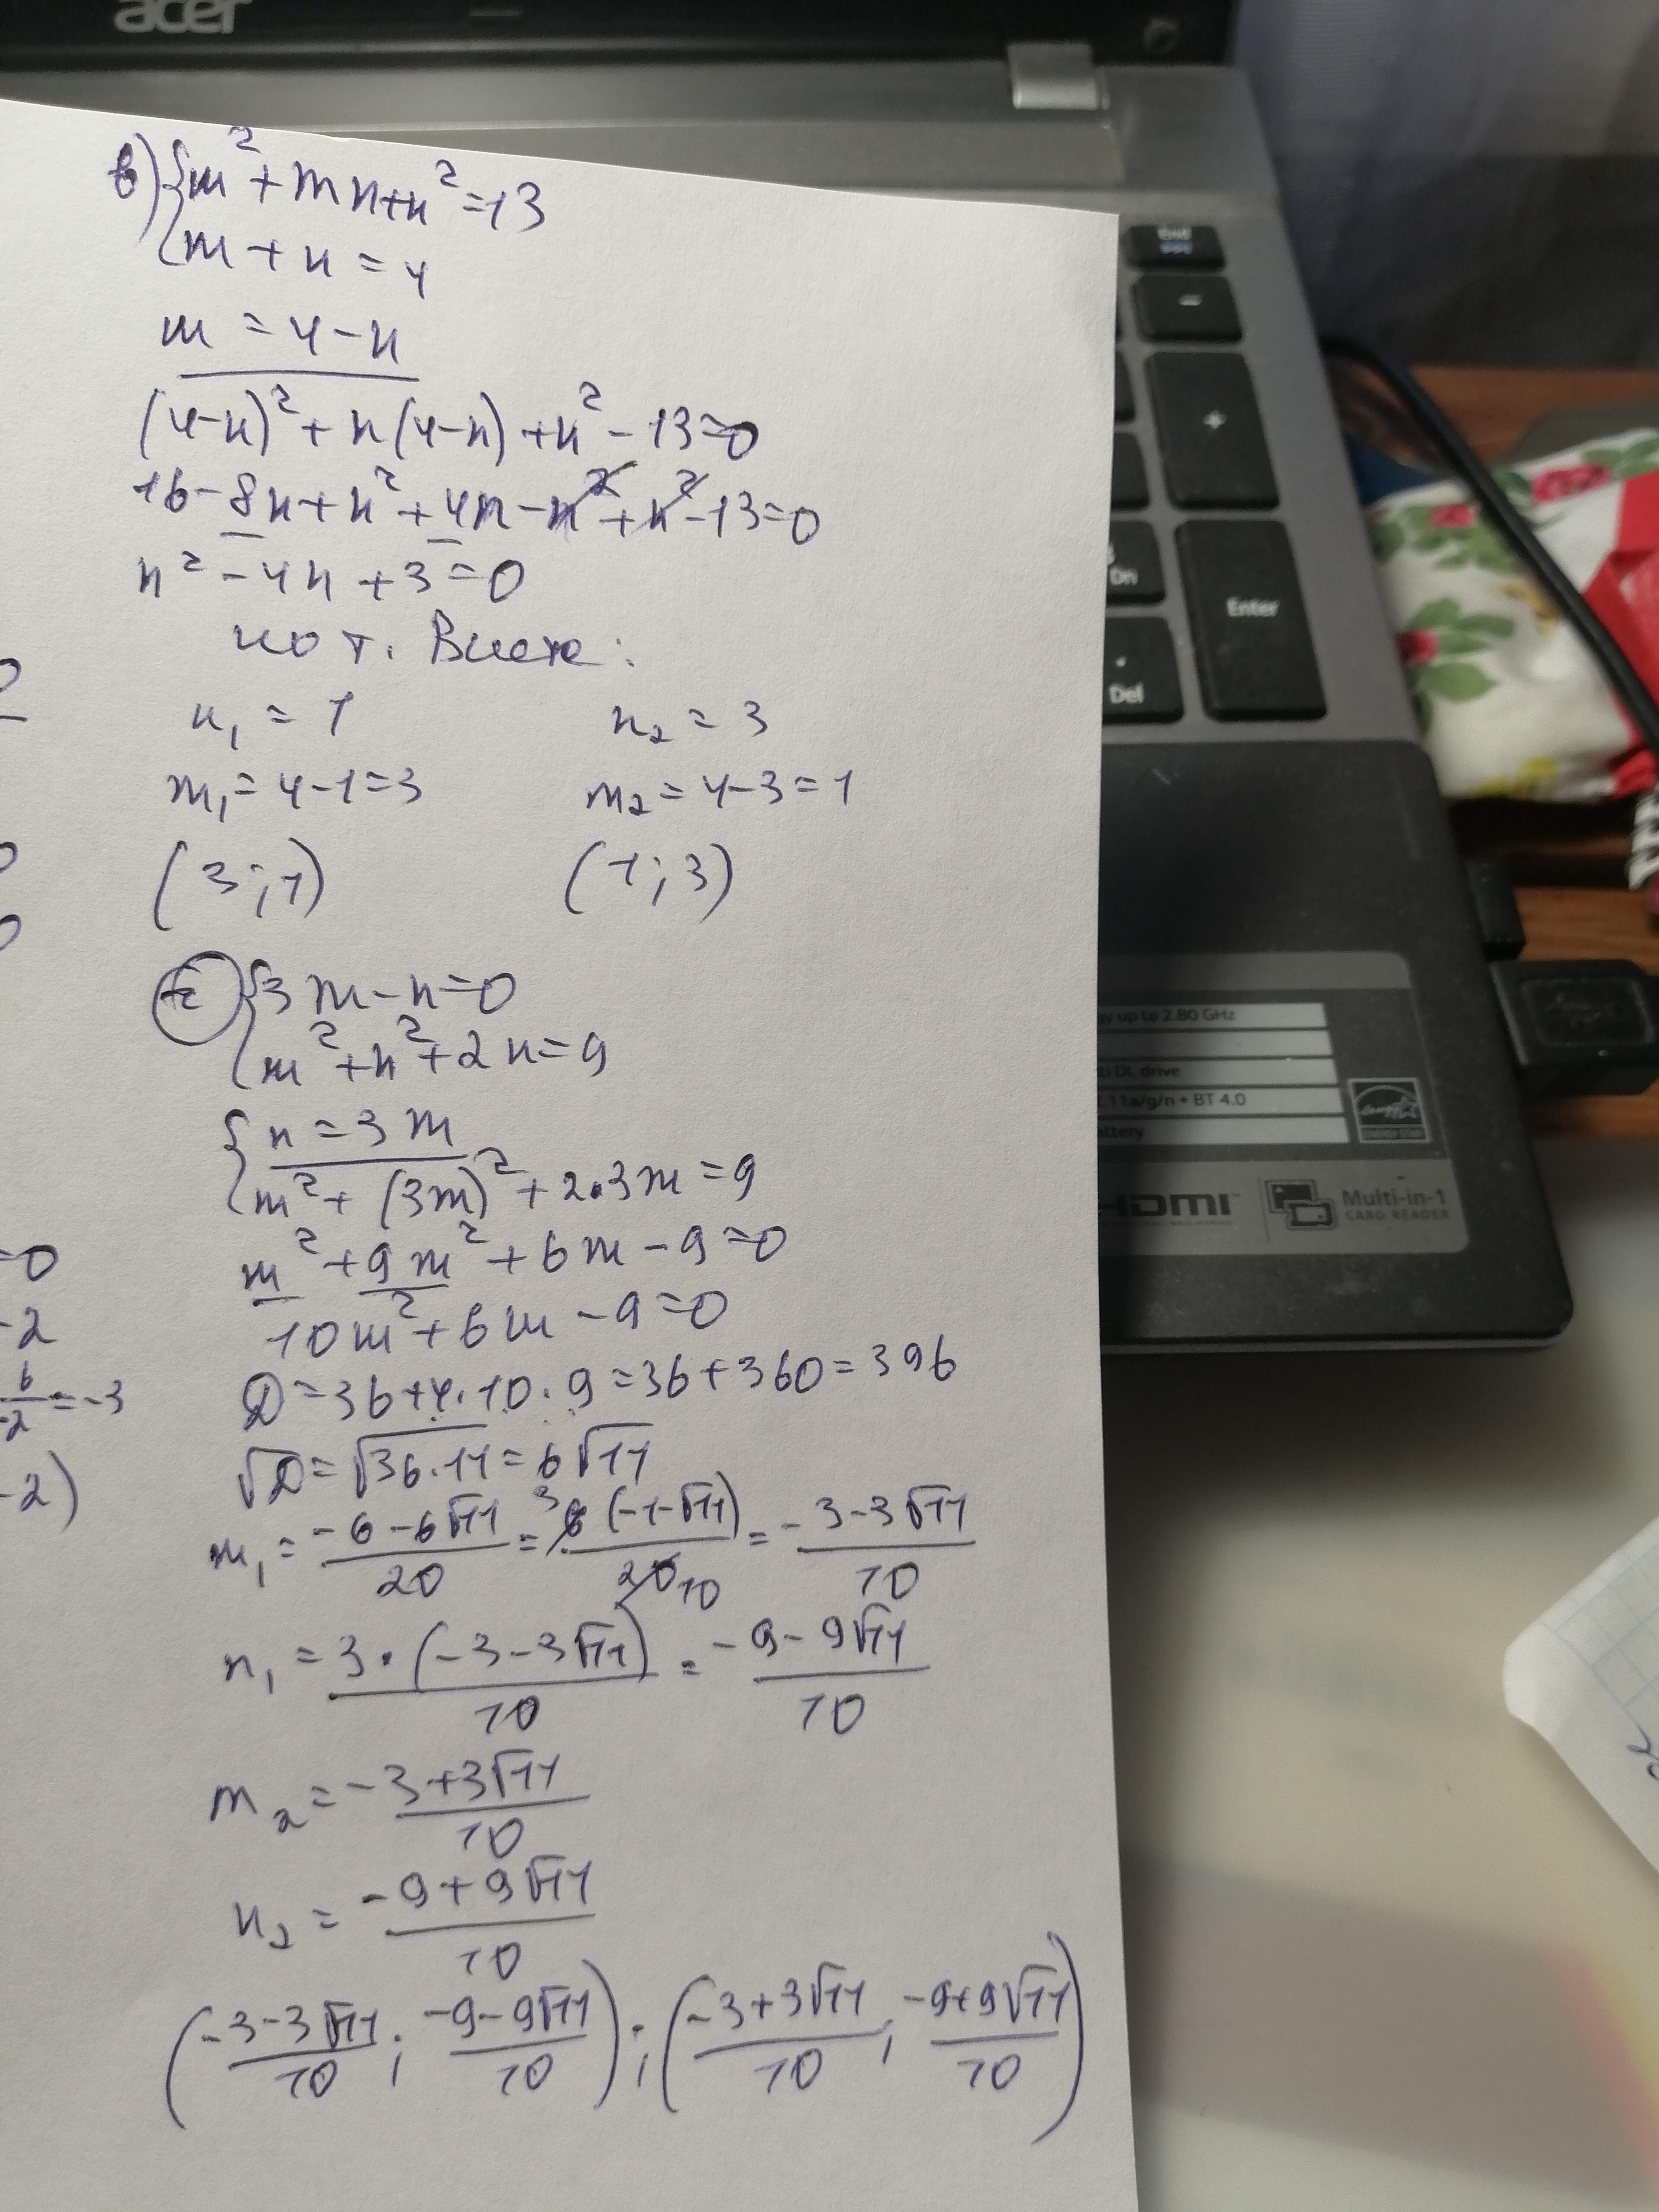 acer
в) {m² + mn + n² = 13
{m + n = 4
m = 4 - n
(4-n)² + n(4-n) + n² - 13 = 0
16 - 8n + n² + 4n - n² + n² - 13 = 0
n² - 4n + 3 = 0
по т. Виета:
n₁ = 1 n₂ = 3
m₁ = 4 - 1 = 3 m₂ = 4 - 3 = 1
(3; 1) (1; 3)
{3m - n = 0
{m² + n² + 2n = 9
{n = 3m
{m² + (3m)² + 2·3m = 9
m² + 9m² + 6m - 9 = 0
10m² + 6m - 9 = 0
D = 36 + 4·10·9 = 36 + 360 = 396
√D = √36·11 = 6√11
m₁ = (-6-6√11)/20 = 6 3 (-1-√11)/20 10 = (-3-3√11)/10
n₁ = 3·(-3-3√11)/10 = (-9-9√11)/10
m₂ = (-3+3√11)/10
n₂ = (-9+9√11)/10
((-3-3√11)/10; (-9-9√11)/10); ((-3+3√11)/10; (-9+9√11)/10)
=0
-2
6/-2 = -3
-2)
End
-
+
Dn
Enter
.
Del
gy up to 2.80 GHz
ti DL drive
.11a/g/n + BT 4.0
attery
ENERGY STAR
HDMI
Multi-in-1
CARD READER